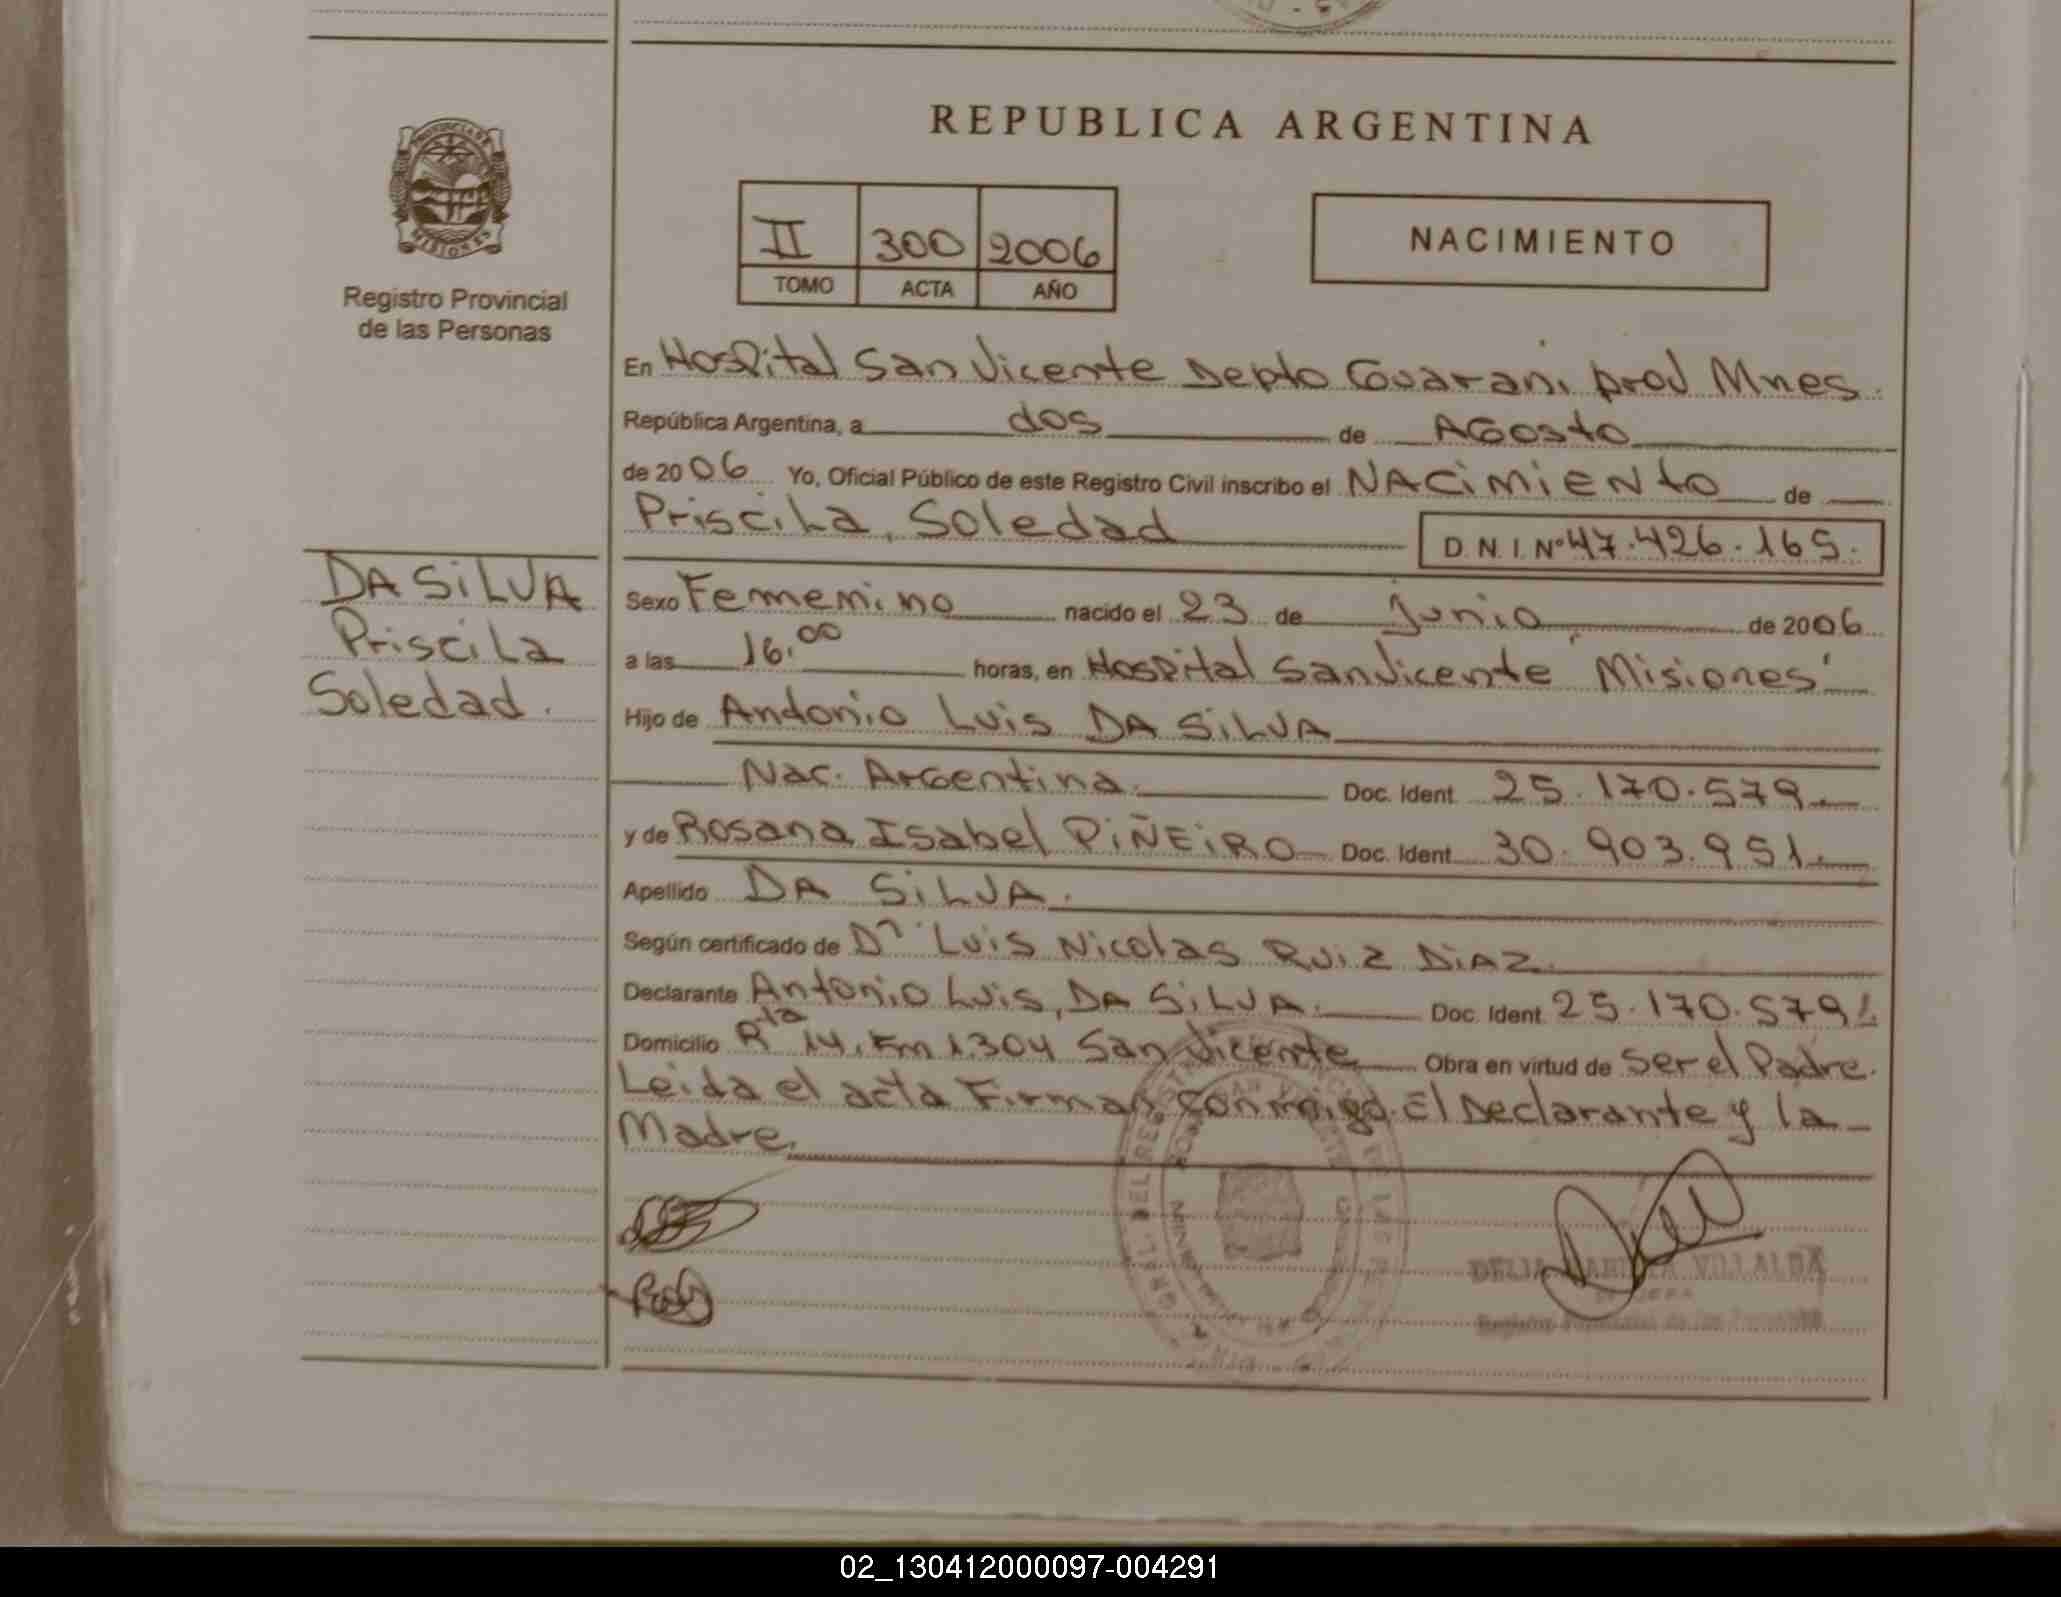 REPUBLICA ARGENTINA
PROVINCIA DE
MISIONES
Registro Provincial
de las Personas
II 300 2006
TOMO ACTA AÑO
NACIMIENTO
En Hospital San Vicente Depto Guarani prov Mnes.
República Argentina, a dos de Agosto
de 2006 Yo, Oficial Público de este Registro Civil inscribo el NACIMIENTO de
Priscila, Soledad
D.N.I. Nº 47.426.165.
DA SILVA
Priscila
Soledad.
Sexo Femenino nacido el 23 de Junio de 2006
a las 16.00 horas, en Hospital San Vicente "Misiones"
Hijo de Antonio Luis DA SILVA
Nac. Argentina. Doc. Ident. 25.170.579.
y de Rosana Isabel PIÑEIRO Doc. Ident. 30.903.951.
Apellido DA SILVA.
Según certificado de Dr. Luis Nicolas Ruiz Diaz.
Declarante Antonio Luis, DA SILVA. Doc. Ident. 25.170.579.
Domicilio Rta 14, Km 1.304 San Vicente Obra en virtud de ser el Padre.
Leida el acta Firman conmigo. El Declarante y la
Madre.
DELIA VILLALBA
02_130412000097-004291